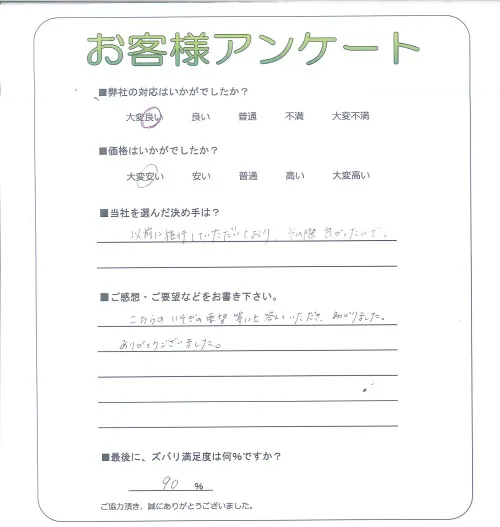 お客様アンケート
■弊社の対応はいかがでしたか?
大変良い 良い 普通 不満 大変不満
■価格はいかがでしたか?
大変安い 安い 普通 高い 大変高い
■当社を選んだ決め手は?
以前に していただいており、その際良かったので。
■ご感想・ご要望などをお書き下さい。
こちらのいそぎの要望等にも答えていただき、助かりました。
ありがとうございました。
■最後に、ズバリ満足度は何%ですか?
90 %
ご協力頂き、誠にありがとうございました。